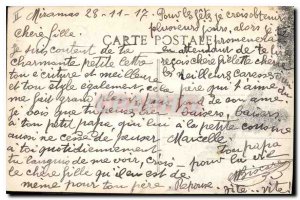 II Miramas 28-11-17
Chère fille.
CARTE POSTALE
Je suis content de ta
charmante petite lettre
ton écriture et meilleur
et ton style également, cela
me fait grand
Je vois que tu penses bien
à ton petit papa qui lui
aussi ne cesse de penser
à toi quotidiennement
tu languis de me voir, crois
le chère fille qu'il en est de
même pour ton père
Pour la fête je crois obtenir
plusieurs jours, alors je
promener
en attendant de te
reçois chère fillette chérie
les meilleurs caresses
père qui t'aime
de son âme
baisers, baisers
à la petite
Marcelle
ton papa
pour la vie
Réponse
vite - vite